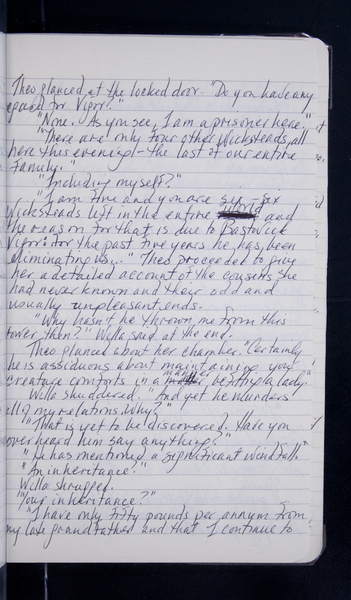 Theo glanced at the locked door. "Do you have any
egress for Vigor?"
"None. As you see, I am a prisoner here."
"There are only four other Wicksteads, all
here this evening - the last of our entire
family."
"Including myself?"
"I am five and you are six - six
Wicksteads left in the entire world and
the reason for that is due to Bastwick
Vigor. For the past five years he has been
eliminating us..." Theo proceeded to give
her a detailed account of the cousins she
had never known and their odd and
usually unpleasant ends.
"Why hasn't he thrown me from this
tower, then?" Willa said at the end.
Theo glanced about her chamber. "Certainly
he is assiduous about maintaining your
creature comforts in a manner befitting a lady."
Willa shuddered. "And yet he murders
all of my relations. Why?"
"That is yet to be discovered. Have you
overheard him say anything?"
"He has mentioned a significant windfall."
"An inheritance?"
Willa shrugged.
"Your inheritance?"
"I have only fifty pounds per annum from
my late grandfather and that I continue to